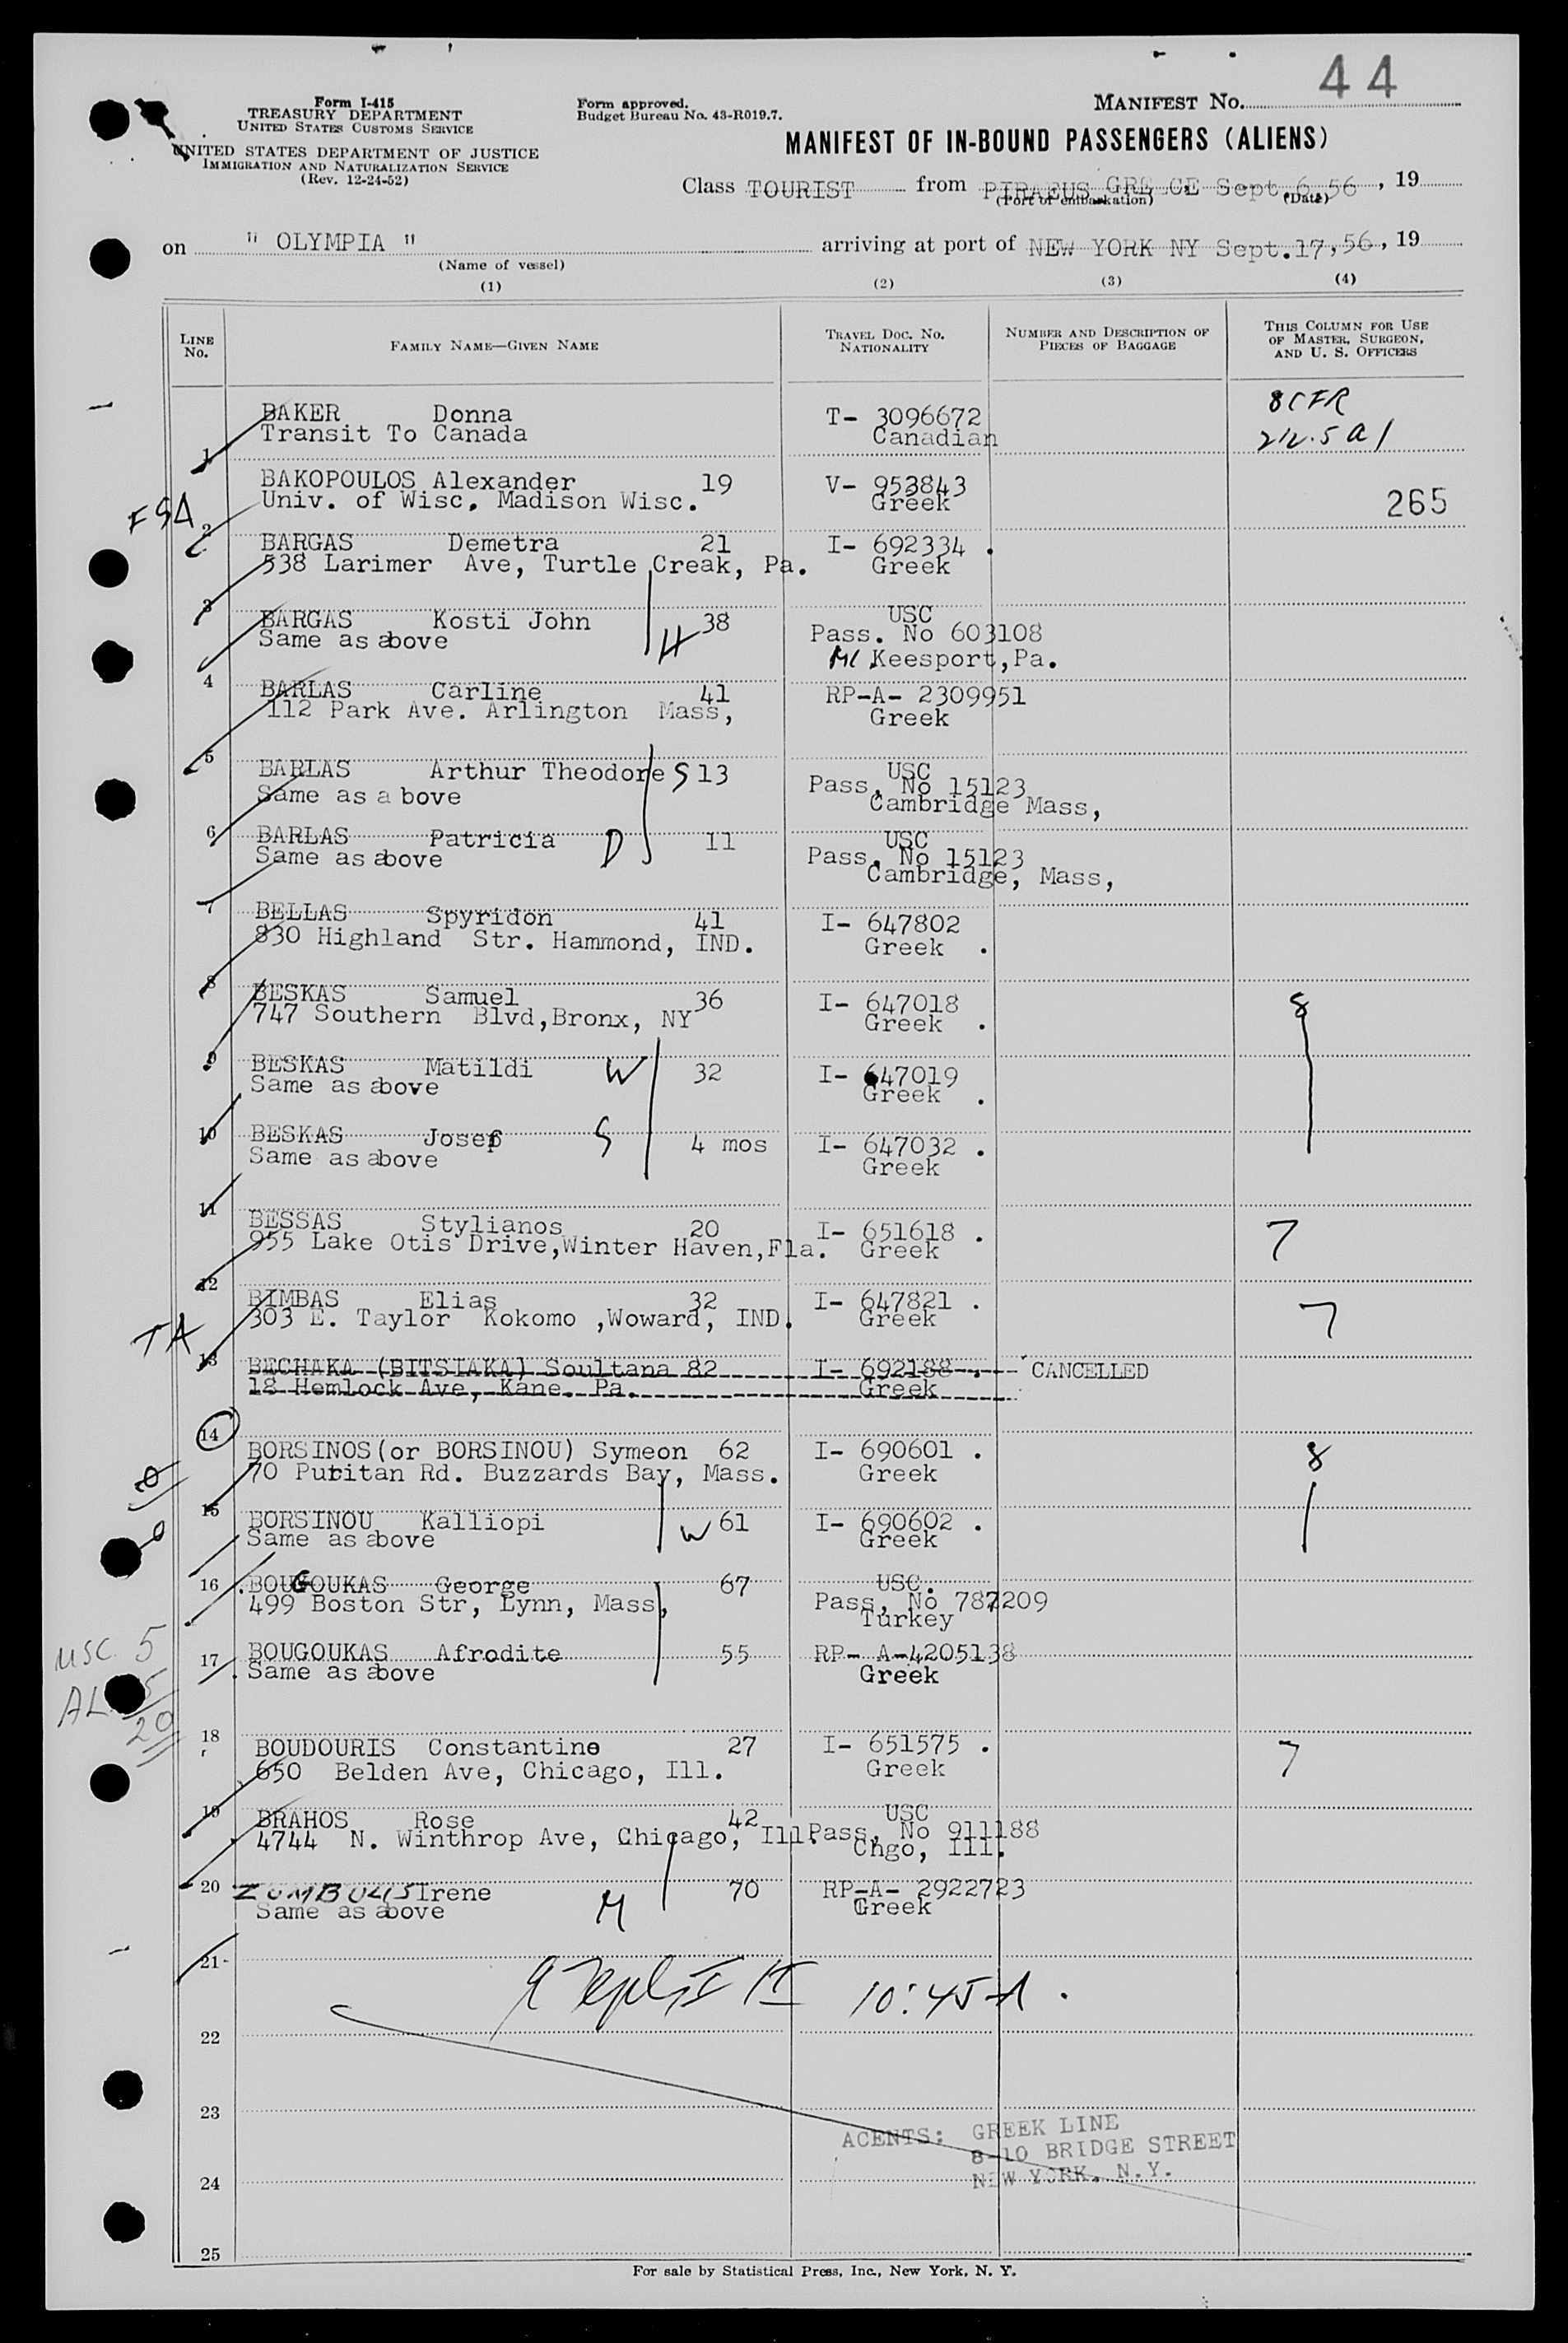 44
Form I-415
TREASURY DEPARTMENT
UNITED STATES CUSTOMS SERVICE
UNITED STATES DEPARTMENT OF JUSTICE
IMMIGRATION AND NATURALIZATION SERVICE
(Rev. 12-24-52)
Form approved.
Budget Bureau No. 43-R019.7.
MANIFEST NO.
MANIFEST OF IN-BOUND PASSENGERS (ALIENS)
Class TOURIST from PIRAEUS GRE CE Sept.6,56, 19
(Port of embarkation) (Date)
on " OLYMPIA " arriving at port of NEW YORK NY Sept.17,56, 19
(Name of vessel)
(1) (2) (3) (4)
LINE No. FAMILY NAME—GIVEN NAME TRAVEL DOC. NO. NATIONALITY NUMBER AND DESCRIPTION OF PIECES OF BAGGAGE THIS COLUMN FOR USE OF MASTER, SURGEON, AND U. S. OFFICERS
BAKER Donna T- 3096672 8CFR
Transit To Canada Canadian 212.5 a 1
1
BAKOPOULOS Alexander 19 V- 953843
Univ. of Wisc. Madison Wisc. Greek 265
FSA
2
BARGAS Demetra 21 I- 692334 .
538 Larimer Ave, Turtle Creak, Pa. Greek
3
BARGAS Kosti John H 38 USC
Same as above Pass. No 603108
Mc Keesport,Pa.
4
BARLAS Carline 41 RP-A- 2309951
112 Park Ave. Arlington Mass, Greek
5
BARLAS Arthur Theodore S 13 USC
Same as a bove Pass. No 15123
Cambridge Mass,
6
BARLAS Patricia D 11 USC
Same as above Pass. No 15123
Cambridge, Mass,
7
BELLAS Spyridon 41 I- 647802
830 Highland Str. Hammond, IND. Greek .
8
BESKAS Samuel 36 I- 647018 8
747 Southern Blvd,Bronx, NY Greek .
9
BESKAS Matildi W 32 I- 647019
Same as above Greek .
10
BESKAS Josef S 4 mos I- 647032 .
Same as above Greek
11
BESSAS Stylianos 20 I- 651618 . 7
955 Lake Otis Drive,Winter Haven,Fla. Greek
12
BIMBAS Elias 32 I- 647821 . 7
303 E. Taylor Kokomo ,Woward, IND. Greek
TA
13
BECHAKA (BITSIAKA) Soultana 82 I- 692188 CANCELLED
18 Hemlock Ave, Kane. Pa. Greek
14
BORSINOS(or BORSINOU) Symeon 62 I- 690601 . 8
70 Puritan Rd. Buzzards Bay, Mass. Greek
15
BORSINOU Kalliopi W 61 I- 690602 .
Same as above Greek
16
BOUGOUKAS George 67 USC.
499 Boston Str, Lynn, Mass, Pass, No 787209
Turkey
USC 5
17
BOUGOUKAS Afrodite 55 RP- A-4205138
Same as above Greek
AL 15
20
18
BOUDOURIS Constantine 27 I- 651575 . 7
650 Belden Ave, Chicago, Ill. Greek
19
BRAHOS Rose 42 USC
4744 N. Winthrop Ave, Chicago, Ill. Pass, No 911188
Chgo, Ill.
20
ZUMBULIS Irene M 70 RP-A- 2922723
Same as above Greek
21
10:45 A.
22
23
AGENTS: GREEK LINE
8-10 BRIDGE STREET
NEW YORK, N.Y.
24
25
For sale by Statistical Press, Inc., New York, N. Y.